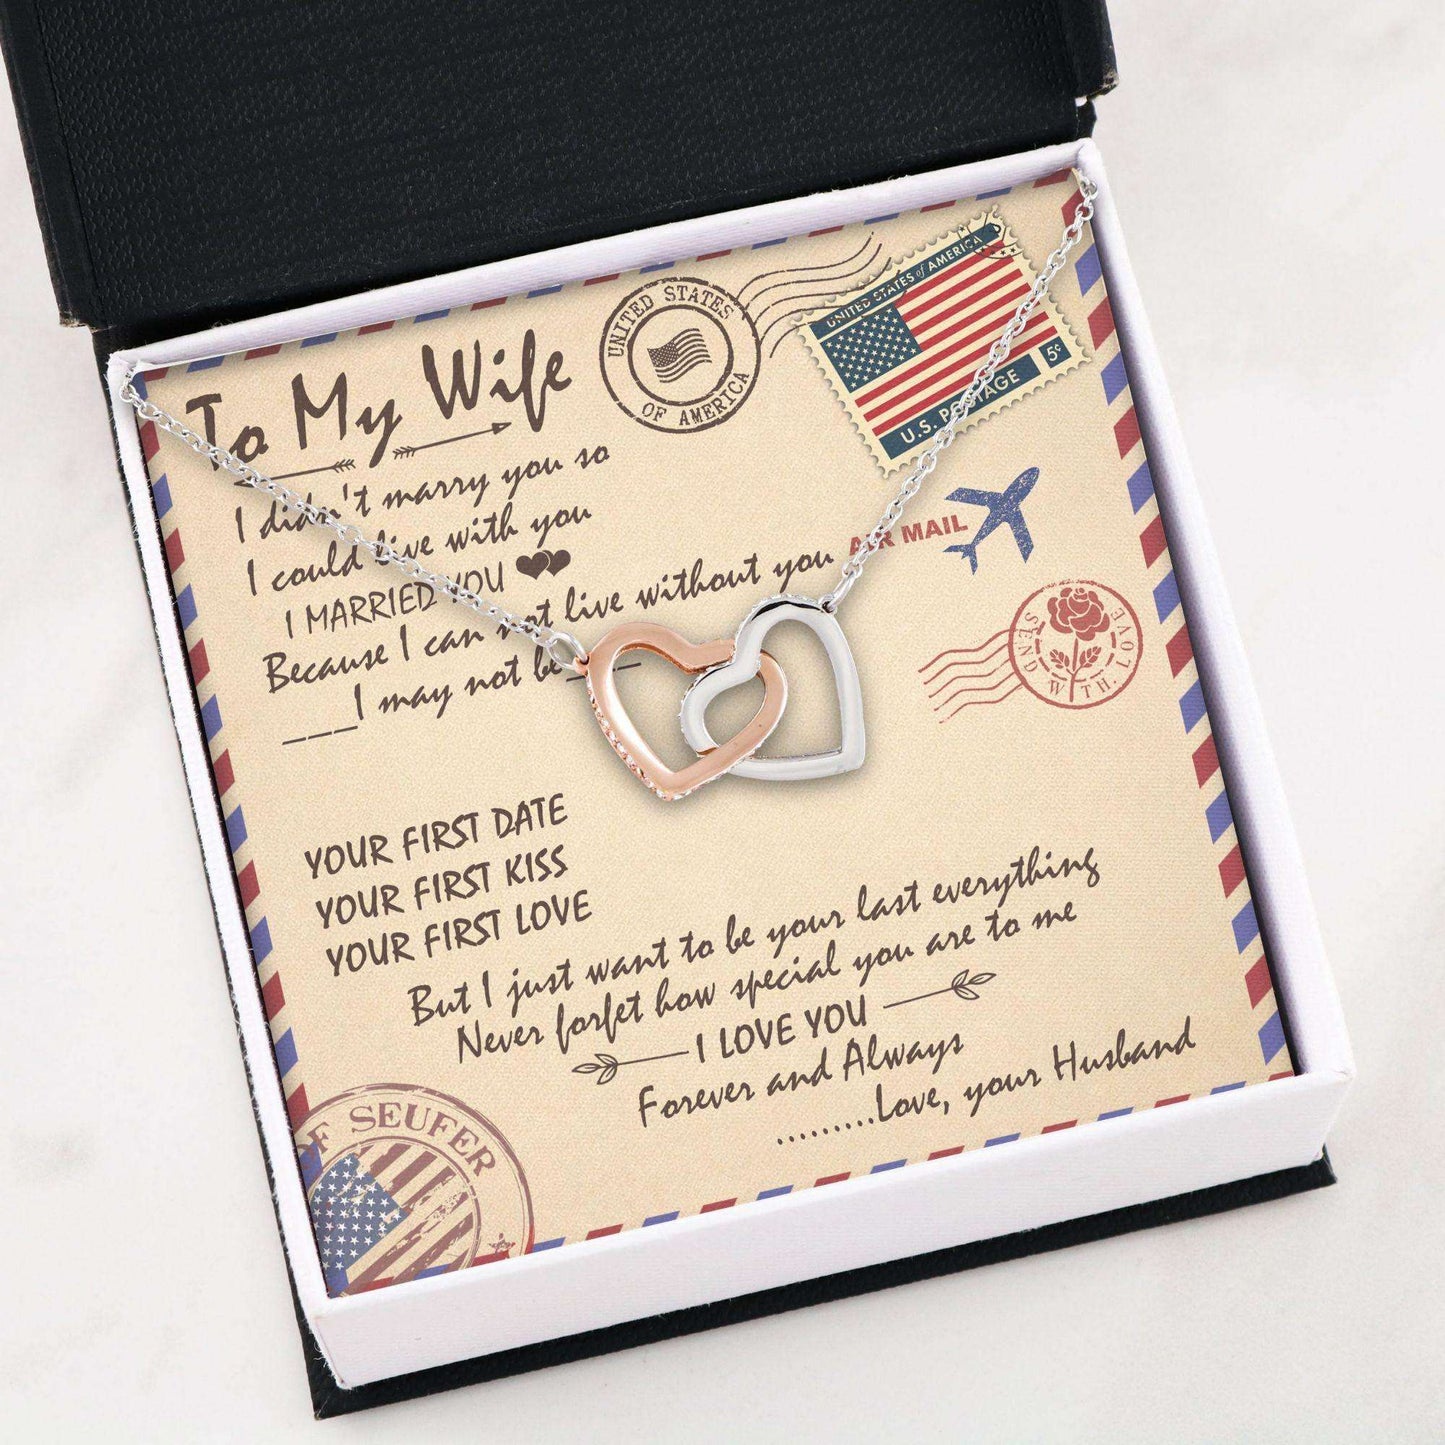 To My Wife
I didn't marry you so
I could live with you
I MARRIED YOU
Because I can not live without you
___I may not be___
YOUR FIRST DATE
YOUR FIRST KISS
YOUR FIRST LOVE
But I just want to be your last everything
Never forfet how special you are to me
I LOVE YOU
Forever and Always
.........Love, your Husband
UNITED STATES
OF AMERICA
UNITED STATES of AMERICA
5¢
U.S. POSTAGE
AIR MAIL
SEND WITH LOVE
OF SEUFER